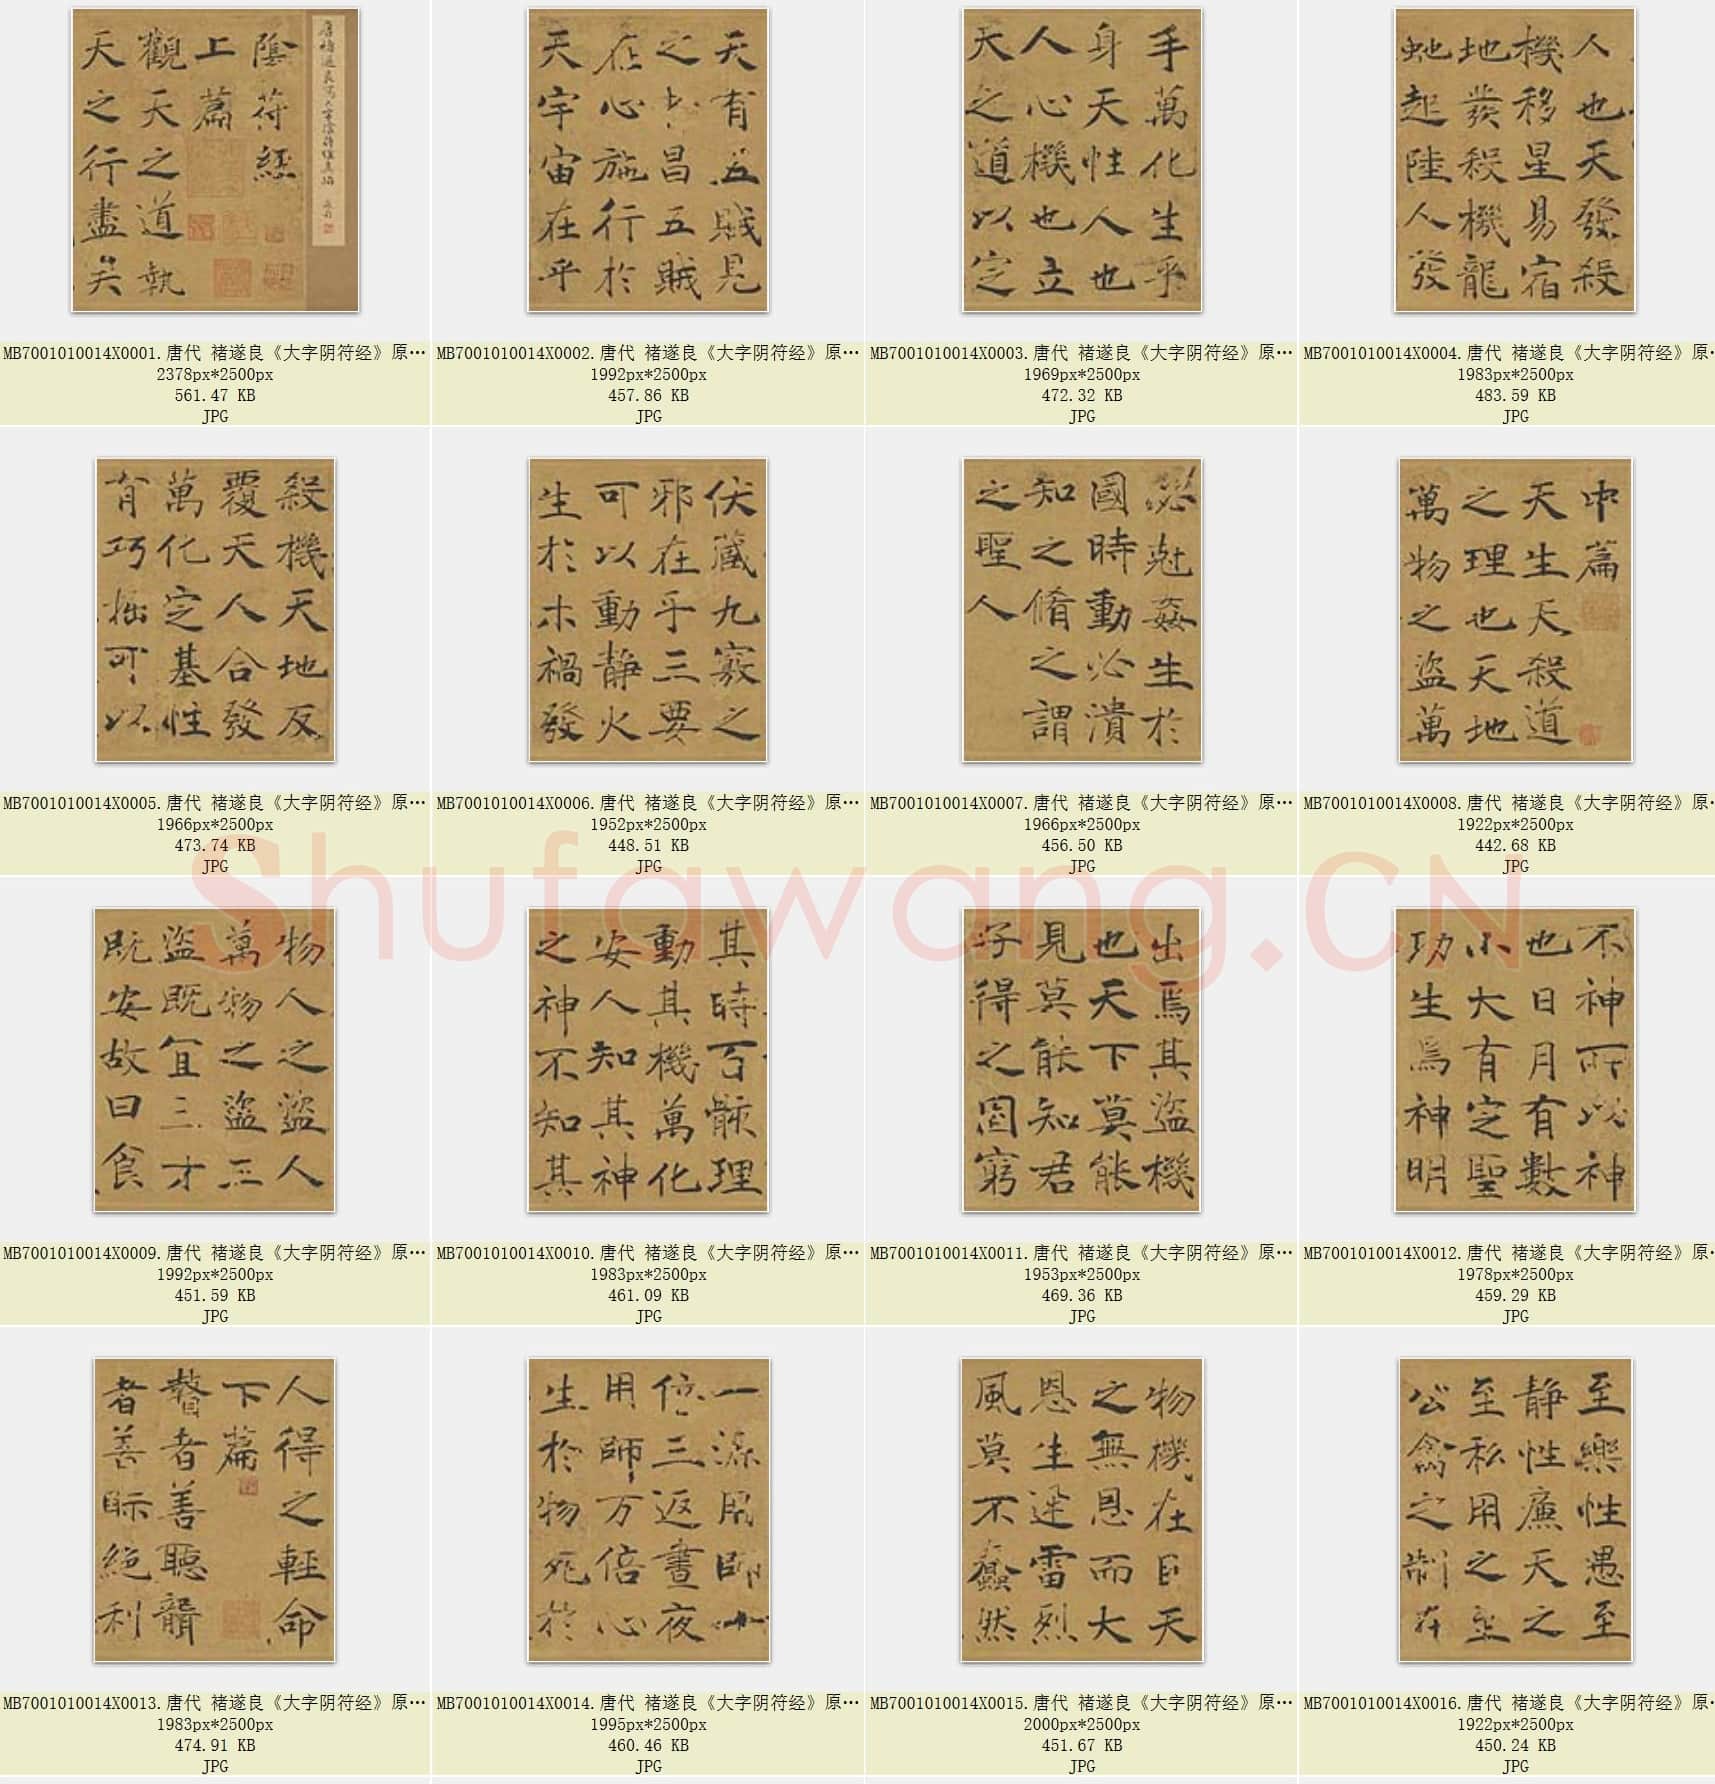 陰符經
上篇
觀天之道執
天之行盡矣
MB7001010014X0001.唐代 褚遂良《大字阴符经》原…
2378px*2500px
561.47 KB
JPG
天有五賊見
之者昌五賊
在心施行於
天宇宙在乎
MB7001010014X0002.唐代 褚遂良《大字阴符经》原…
1992px*2500px
457.86 KB
JPG
手萬化生乎
身天性人也
人心機也立
天之道以定
MB7001010014X0003.唐代 褚遂良《大字阴符经》原…
1969px*2500px
472.32 KB
JPG
人也天發殺
機移星易宿
地發殺機龍
虵起陸人發
MB7001010014X0004.唐代 褚遂良《大字阴符经》原…
1983px*2500px
483.59 KB
JPG
殺機天地反
覆天人合發
萬化定基性
有巧拙可以
MB7001010014X0005.唐代 褚遂良《大字阴符经》原…
1966px*2500px
473.74 KB
JPG
伏藏九竅之
邪在乎三要
可以動靜火
生於木禍發
MB7001010014X0006.唐代 褚遂良《大字阴符经》原…
1952px*2500px
448.51 KB
JPG
必尅姦生於
國時動必潰
知之脩之謂
之聖人
MB7001010014X0007.唐代 褚遂良《大字阴符经》原…
1966px*2500px
456.50 KB
JPG
中篇
天生天殺道
之理也天地
萬物之盜萬
MB7001010014X0008.唐代 褚遂良《大字阴符经》原…
1922px*2500px
442.68 KB
JPG
物人之盜人
萬物之盜三
盜既宜三才
既安故曰食
MB7001010014X0009.唐代 褚遂良《大字阴符经》原…
1992px*2500px
451.59 KB
JPG
其時百骸理
動其機萬化
安人知其神
之神不知其
MB7001010014X0010.唐代 褚遂良《大字阴符经》原…
1983px*2500px
461.09 KB
JPG
出焉其盜機
也天下莫能
見莫能知君
子得之固窮
MB7001010014X0011.唐代 褚遂良《大字阴符经》原…
1953px*2500px
469.36 KB
JPG
不神所以神
也日月有數
小大有定聖
功生焉神明
MB7001010014X0012.唐代 褚遂良《大字阴符经》原…
1978px*2500px
459.29 KB
JPG
人得之輕命
下篇
瞽者善聽聾
者善眎絕利
MB7001010014X0013.唐代 褚遂良《大字阴符经》原…
1983px*2500px
474.91 KB
JPG
一源用師十
倍三返晝夜
用師万倍心
生於物死於
MB7001010014X0014.唐代 褚遂良《大字阴符经》原…
1995px*2500px
460.46 KB
JPG
物機在目天
之無恩而大
恩生迅雷烈
風莫不蠢然
MB7001010014X0015.唐代 褚遂良《大字阴符经》原…
2000px*2500px
451.67 KB
JPG
至樂性愚至
靜性廉天之
至私用之至
公禽之制在
MB7001010014X0016.唐代 褚遂良《大字阴符经》原…
1922px*2500px
450.24 KB
JPG
Shufawang.CN